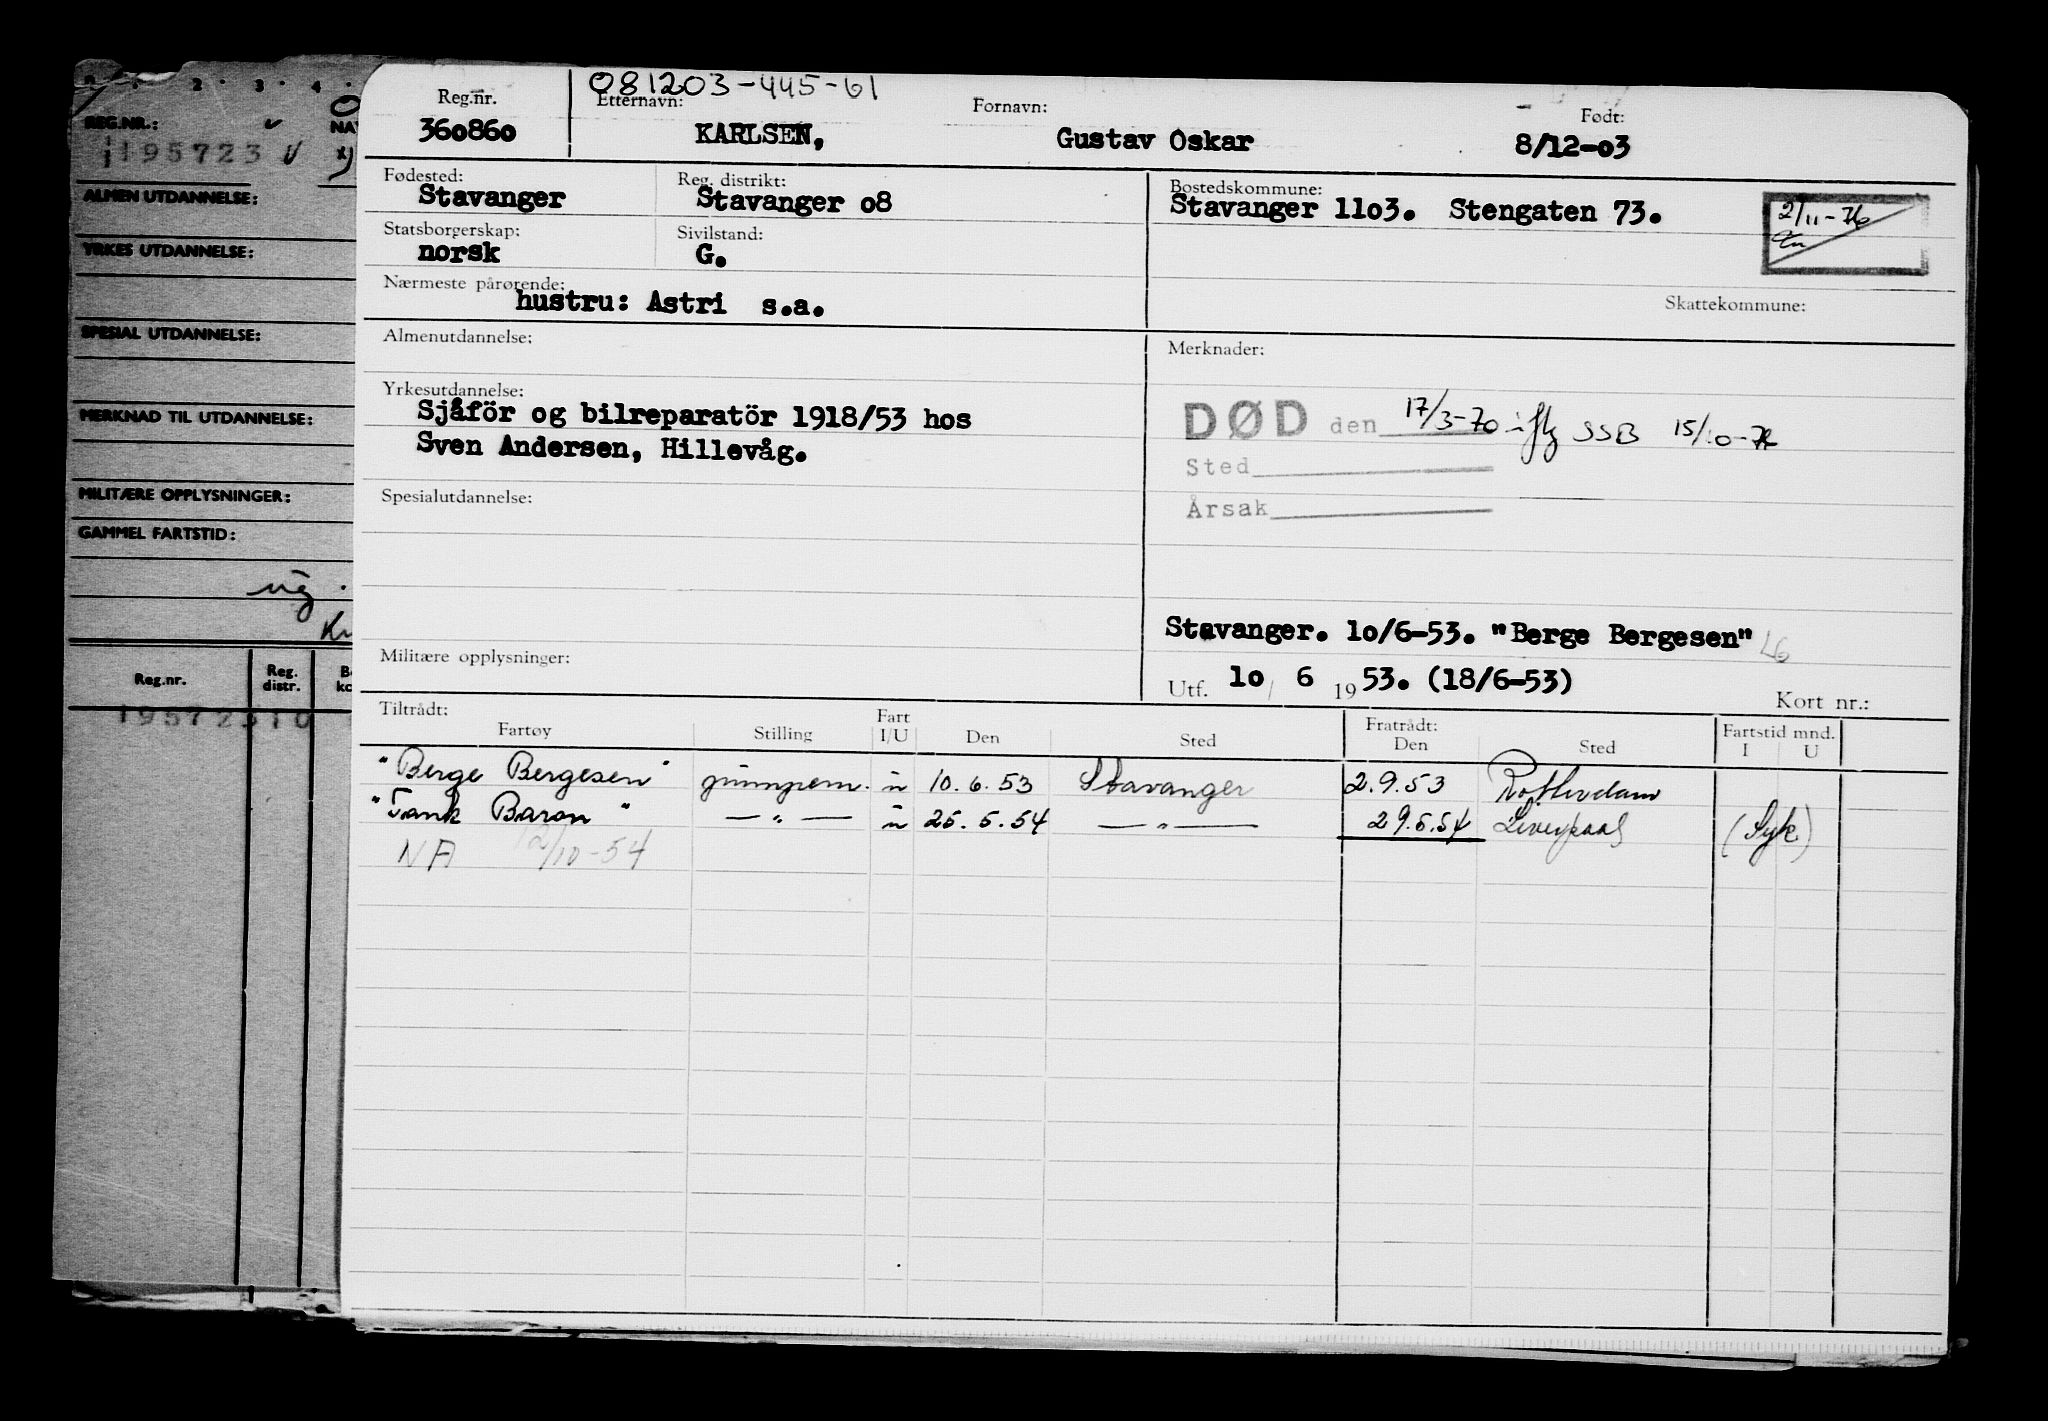 2 . 3 . 4 .
REG.NR.:
NA
195723
ALMEN UTDANNELSE:
YRKES UTDANNELSE:
SPESIAL UTDANNELSE:
MERKNAD TIL UTDANNELSE:
MILITÆRE OPPLYSNINGER:
GAMMEL FARTSTID:
Reg.nr.
Reg. distr.
195723 10
081203-445-61
Reg.nr.
Etternavn:
Fornavn:
Født:
360860
KARLSEN,
Gustav Oskar
8/12-03
Fødested:
Reg. distrikt:
Bostedskommune:
Stavanger
Stavanger o8
Stavanger 11o3. Stengaten 73.
2/11-76
Statsborgerskap:
Sivilstand:
norsk
G.
Nærmeste pårørende:
hustru: Astri s.a.
Skattekommune:
Almenutdannelse:
Merknader:
Yrkesutdannelse:
Sjåför og bilreparatör 1918/53 hos
Sven Andersen, Hillevåg.
DØD den 17/3-70 iflg SSB 15/10-76
Sted
Årsak
Spesialutdannelse:
Stavanger. 10/6-53. "Berge Bergesen"
Militære opplysninger:
Utf. 10 / 6 1953. (18/6-53)
Kort nr.:
Tiltrådt:
Fartøy
Stilling
Fart I/U
Den
Sted
Fratrådt:
Den
Sted
Fartstid mnd.
I U
"Berge Bergesen" pumpem. u 10.6.53 Stavanger 2.9.53 Rotterdam
"Tank Baron" — " — u 25.5.54 — " — 29.5.54 Liverpool (Syk)
NA 12/10-54